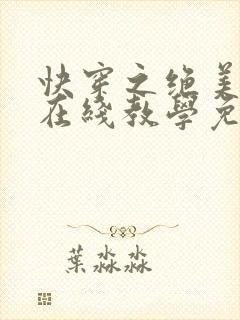 快穿之绝美
在线教學免
葉淼淼